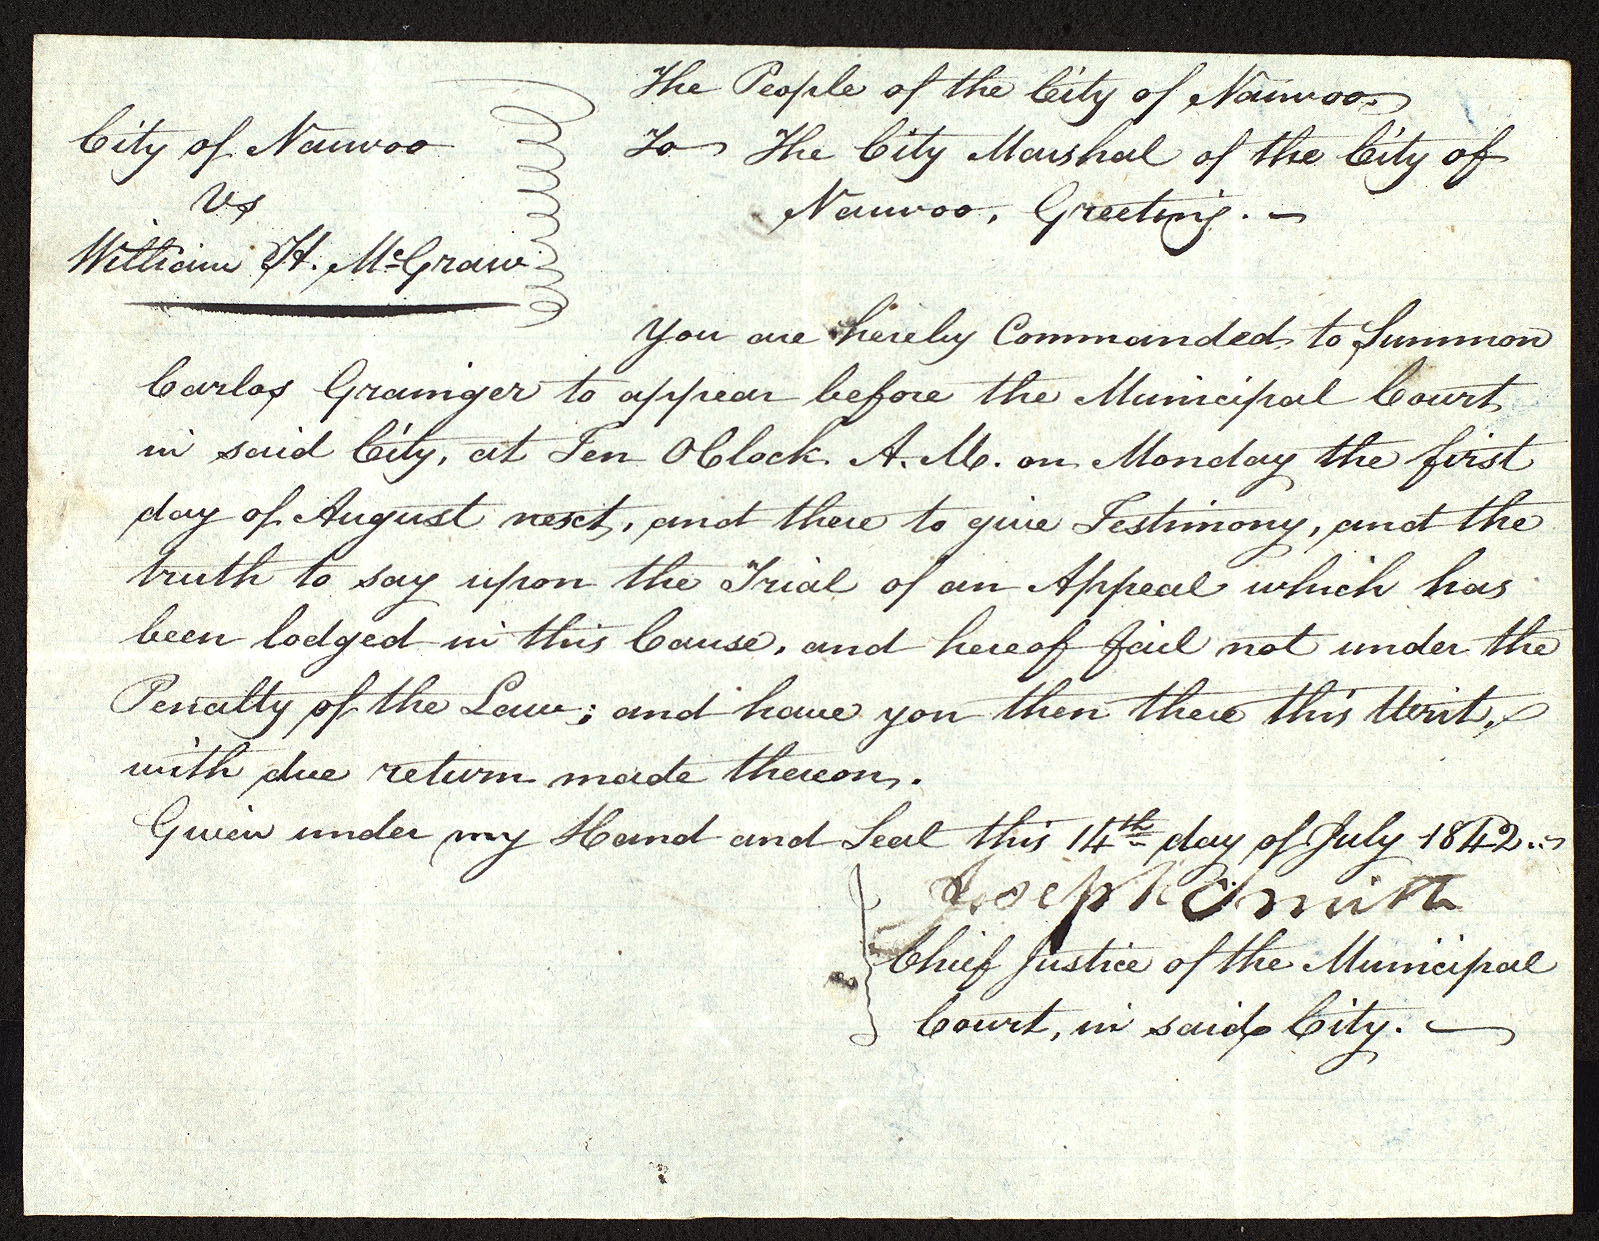 City of Nauvoo
vs
William H. McGraw
The People of the City of Nauvoo.
To The City Marshal of the City of
Nauvoo, Greeting. —
You are hereby Commanded to Summon
Carlos Grainger to appear before the Municipal Court
in said City, at Ten OClock A. M. on Monday the first
day of August next, and there to give Testimony, and the
truth to say upon the Trial of an Appeal which has
been lodged in this Cause, and hereof fail not under the
Penalty of the Law; and have you then there this Writ,
with due return made thereon.
Given under my Hand and Seal this 14th day of July 1842.
Joseph Smith
Chief Justice of the Municipal
Court, in said City. —